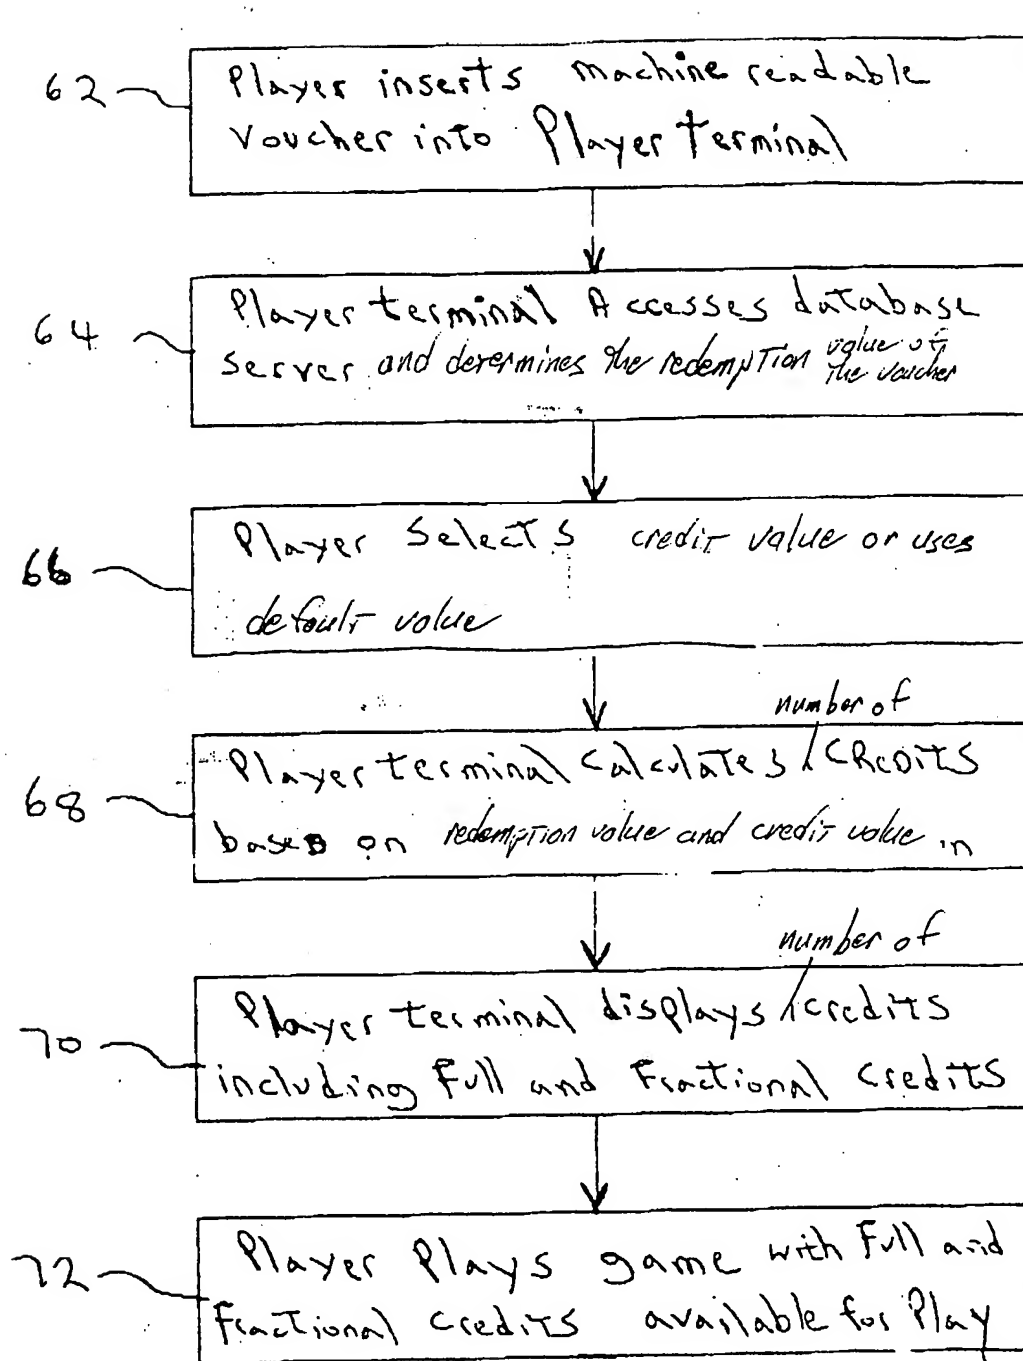 62
Player inserts machine readable
Voucher into Player terminal
64
Player terminal Accesses database
server and determines the redemption value of
the voucher
66
Player Selects credit value or uses
default value
number of
68
Player terminal calculates credits
based on redemption value and credit value in
number of
70
Player terminal displays credits
including Full and Fractional credits
72
Player Plays game with Full and
Fractional credits available for Play